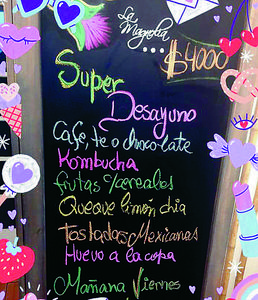 La
Magnolia
$4000
Super
Desayuno
Café, te o chocolate
Kombucha
frutas c/cereales
Queque limón chia
Tostadas Mexicanas
Huevo a la copa
Mañana Viernes